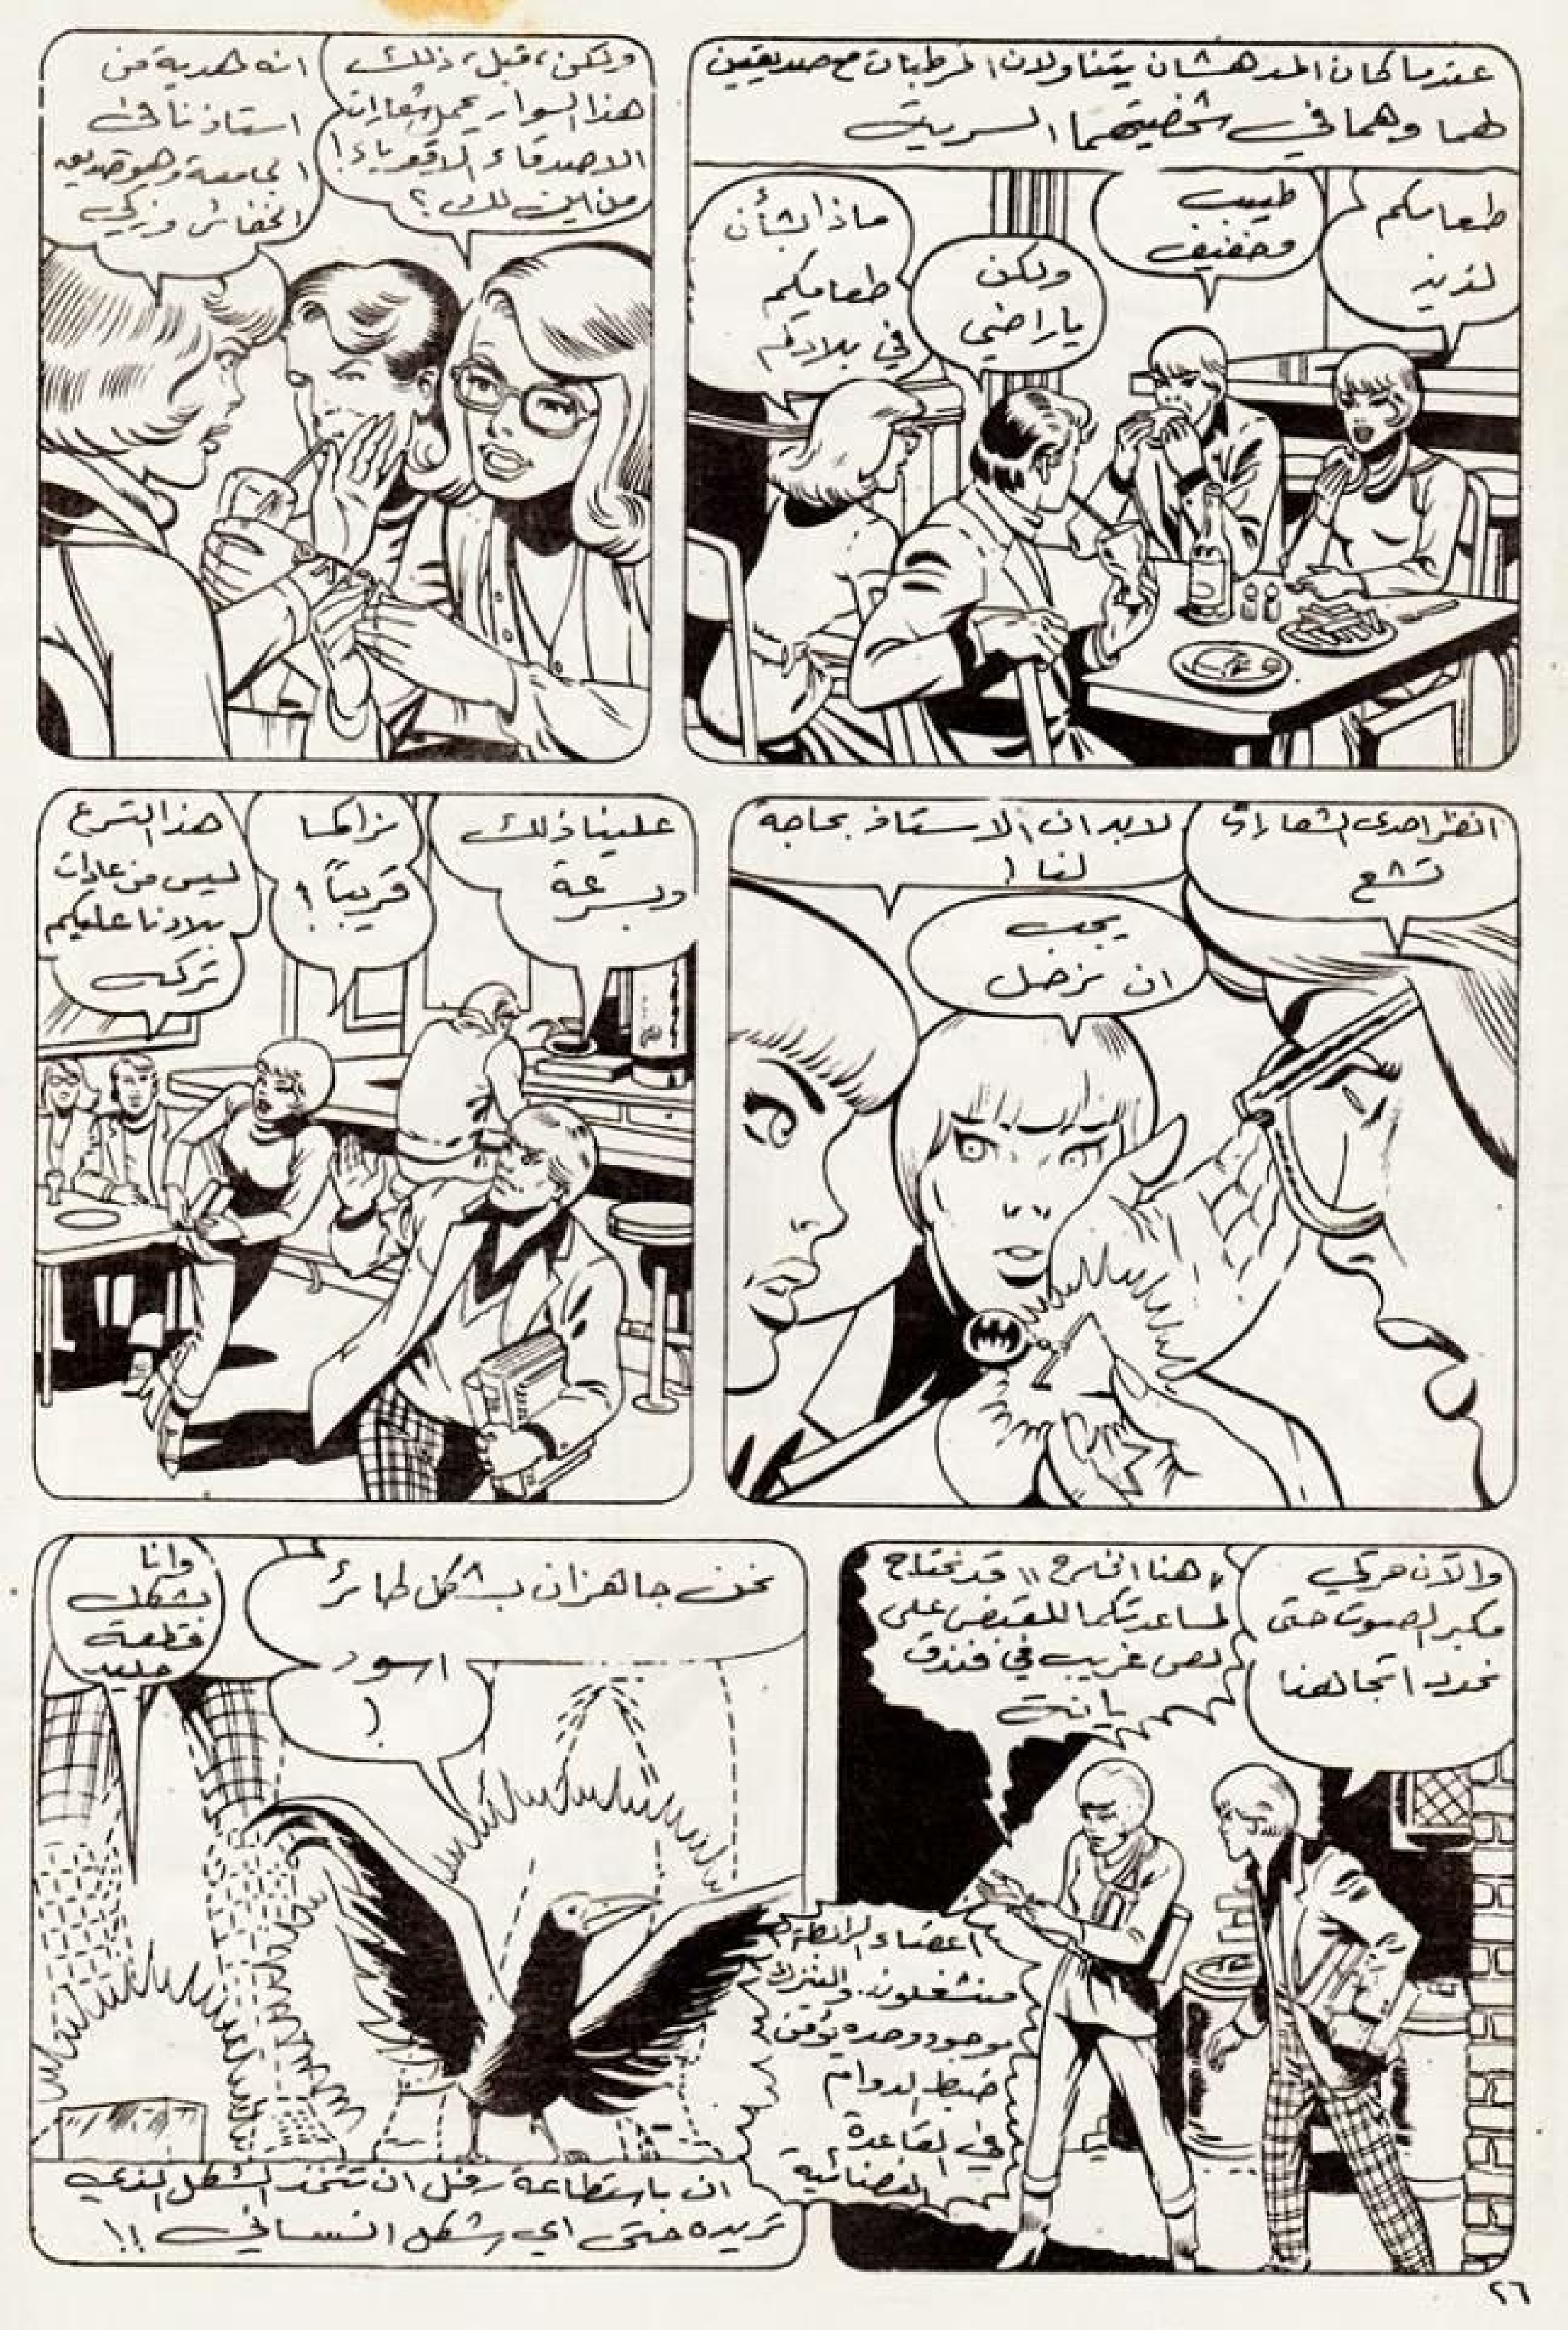 عندما كان المدهشان يتناولان المرطبات مع صديقين
لهما وهما في شخصيتهما السرية
طعامكم
لذيذ
طيب
وخفيف
ولكن
ياراضي
ماذا بشأن
طعامكم
في بلادكم
ولكن، قبل، ذلك
هذا السوار يحمل شعارات
الاصدقاء الاقوياء!
من اين لك؟
انه هدية من
استاذنا في
الجامعة وهو صديق
الخفاش وزكي
انظر احدى الشعارات
تشع
لابد ان الاستاذ بحاجة
لنا!
يجب
ان نرحل
علينا ذلك
وبسرعة
نراكما
قريباً!
هذا التسرع
ليس من عادات
بلادنا عليكم
تركه
والآن حركي
مكبر الصوت حتى
نحدد اتجاهنا
"هنا الخارج" قد نحتاج
لمساعدتكما للقبض على
لص غريب في فندق
يانت
اعضاء الرابطة
منشغلون. والمتزلج
موجود وحده يؤمن
ضبط الدوام
في القاعدة
الفضائية
نحن جاهزان بشكل طائر
اسود
!
وانا
بشكل
قطعة
جليد
ان باستطاعة رفل ان تتخذ الشكل الذي
تريده حتى اي شكل انساني !!
٢٦